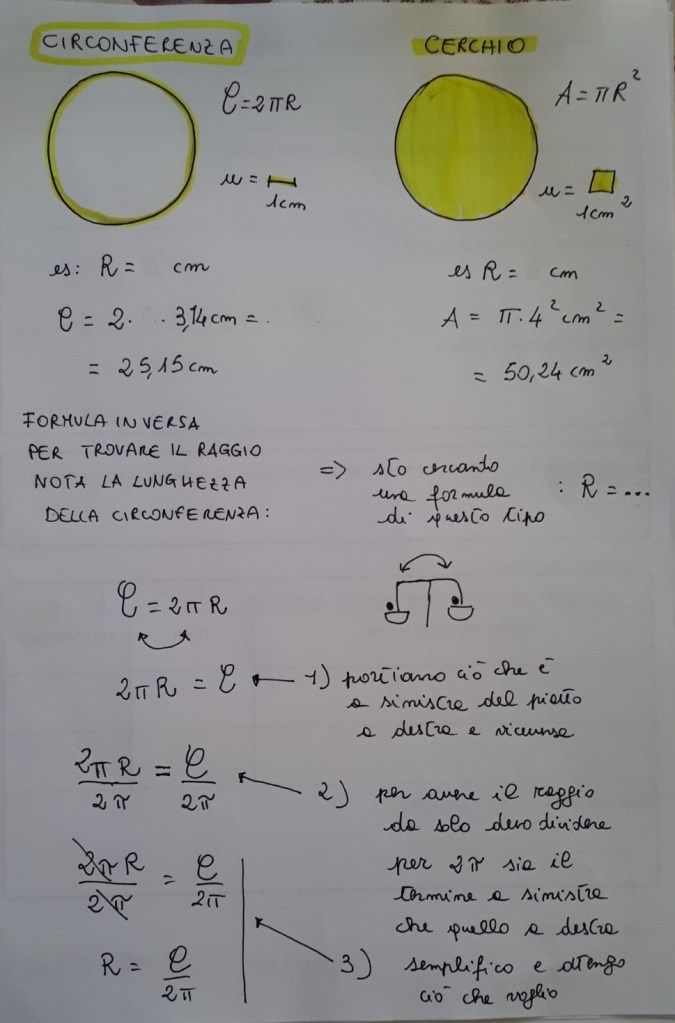 CIRCONFERENZA
C = 2πR
u =
1cm
es: R = cm
C = 2· · 3,14 cm =
= 25,15 cm
CERCHIO
A = πR²
u =
1cm²
es R = cm
A = π·4² cm² =
= 50,24 cm²
FORMULA INVERSA
PER TROVARE IL RAGGIO
NOTA LA LUNGHEZZA
DELLA CIRCONFERENZA:
=> sto cercanto
una formula
di questo tipo
: R = ...
C = 2πR
2πR = C
1) portiamo ciò che è
a sinistra del piatto
a destra e viceversa
2πR/2π = C/2π
2) per avere il raggio
da solo devo dividere
per 2π sia il
termine a sinistra
che quello a destra
2πR/2π = C/2π
R = C/2π
3) semplifico e ottengo
ciò che voglio